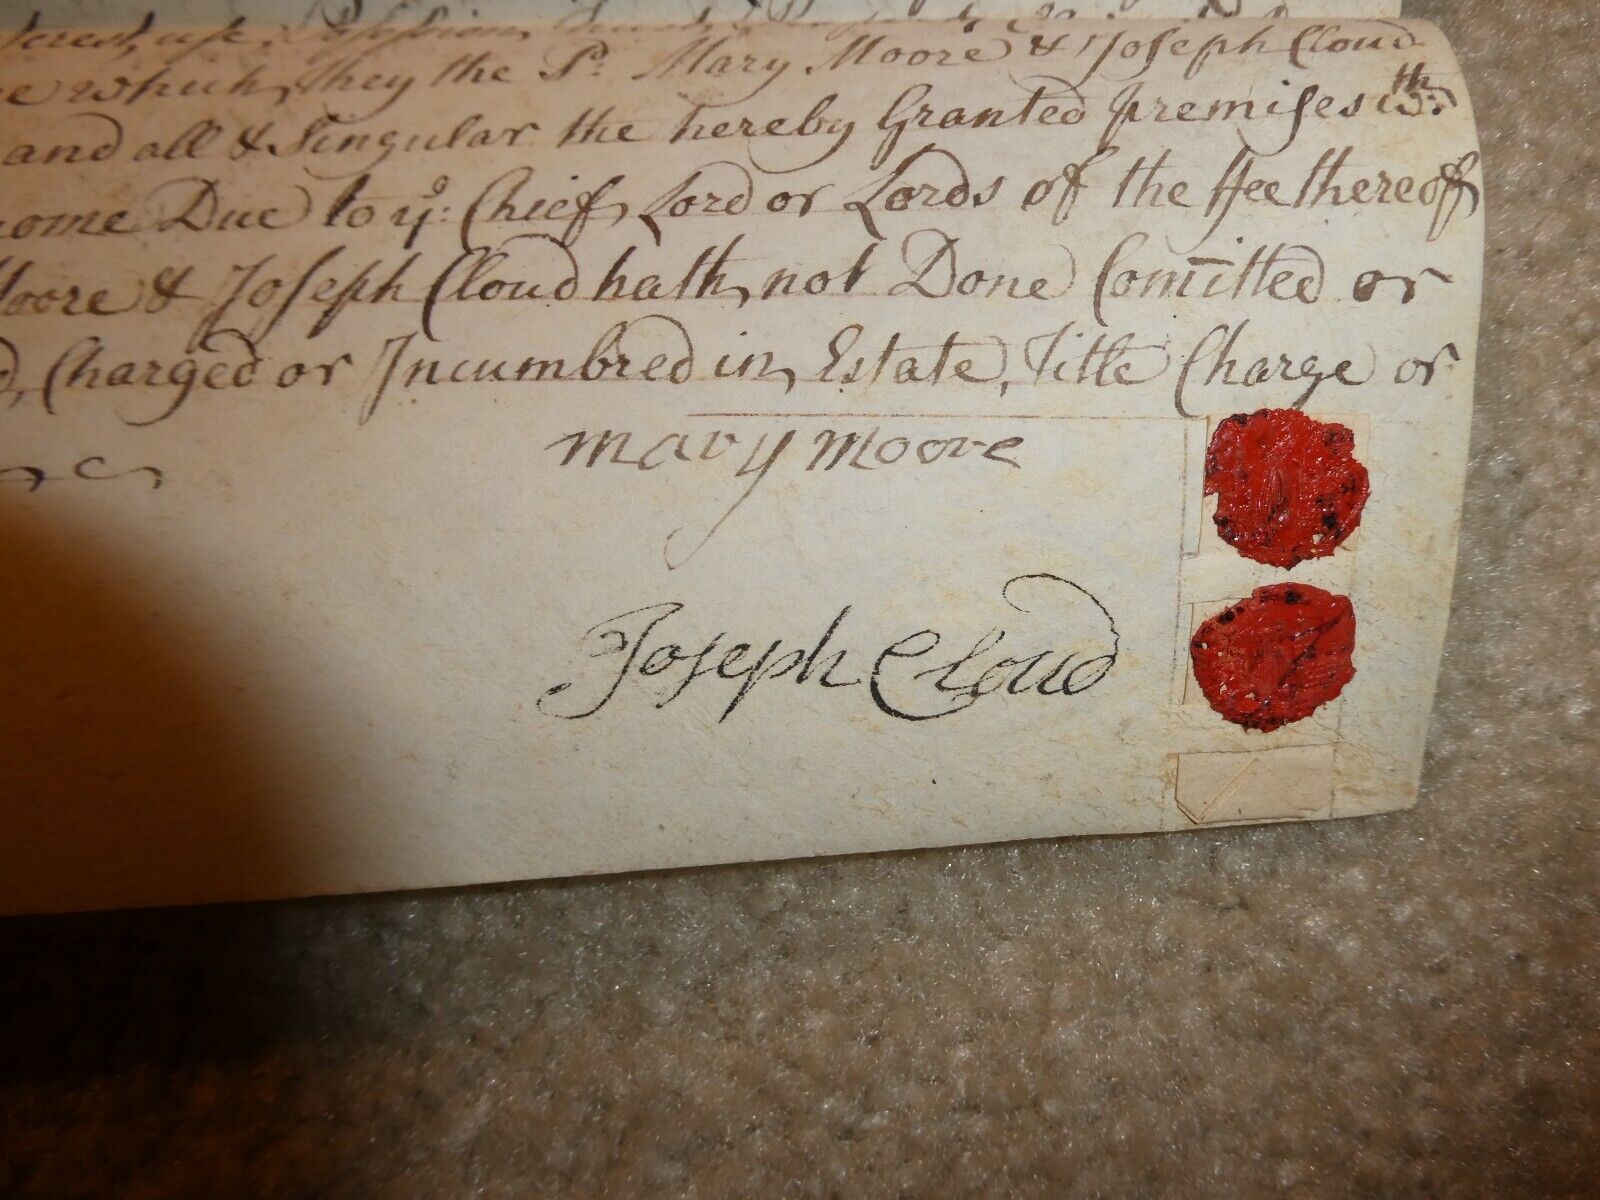 use
which they the Sd: Mary Moore & Joseph Cloud
and all & Singular the hereby Granted premises wth:
come Due to ye: Chief Lord or Lords of the ffee thereoff
Moore & Joseph Cloud hath not Done Comitted or
Charged or Incumbred in Estate, Title Charge or
mary moore
Joseph Cloud